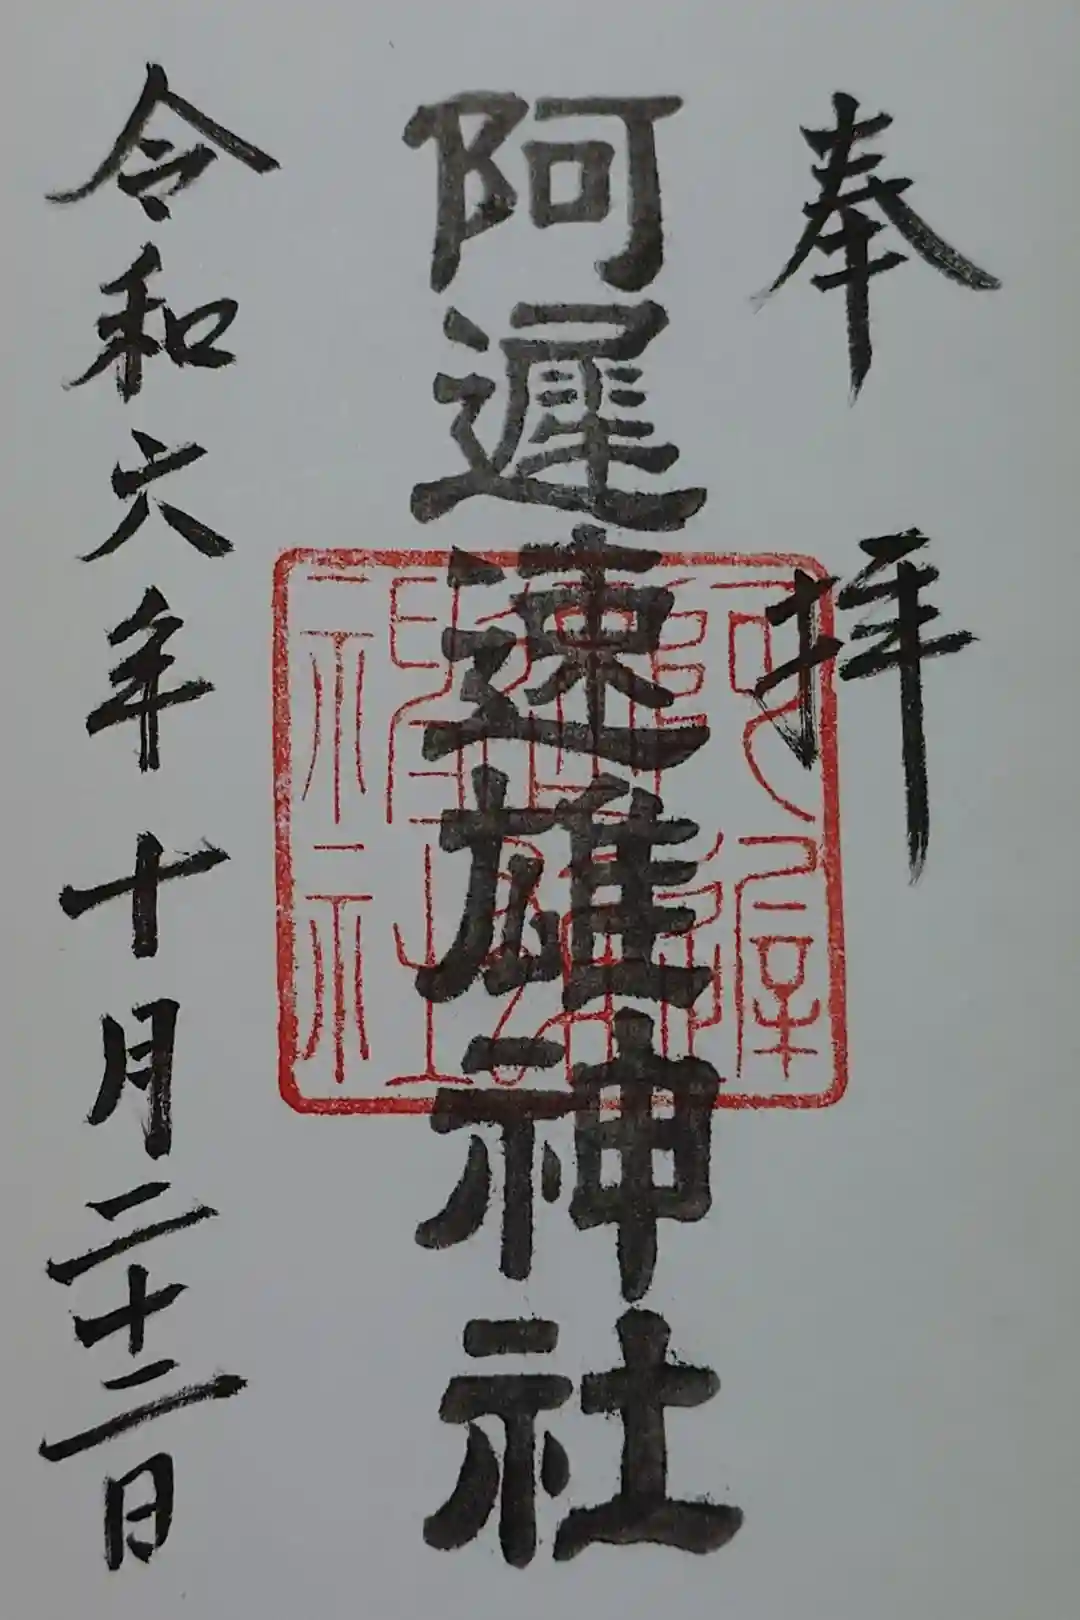 奉拝
阿遅速雄神社
阿遅速雄神社
令和六年十月二十二日